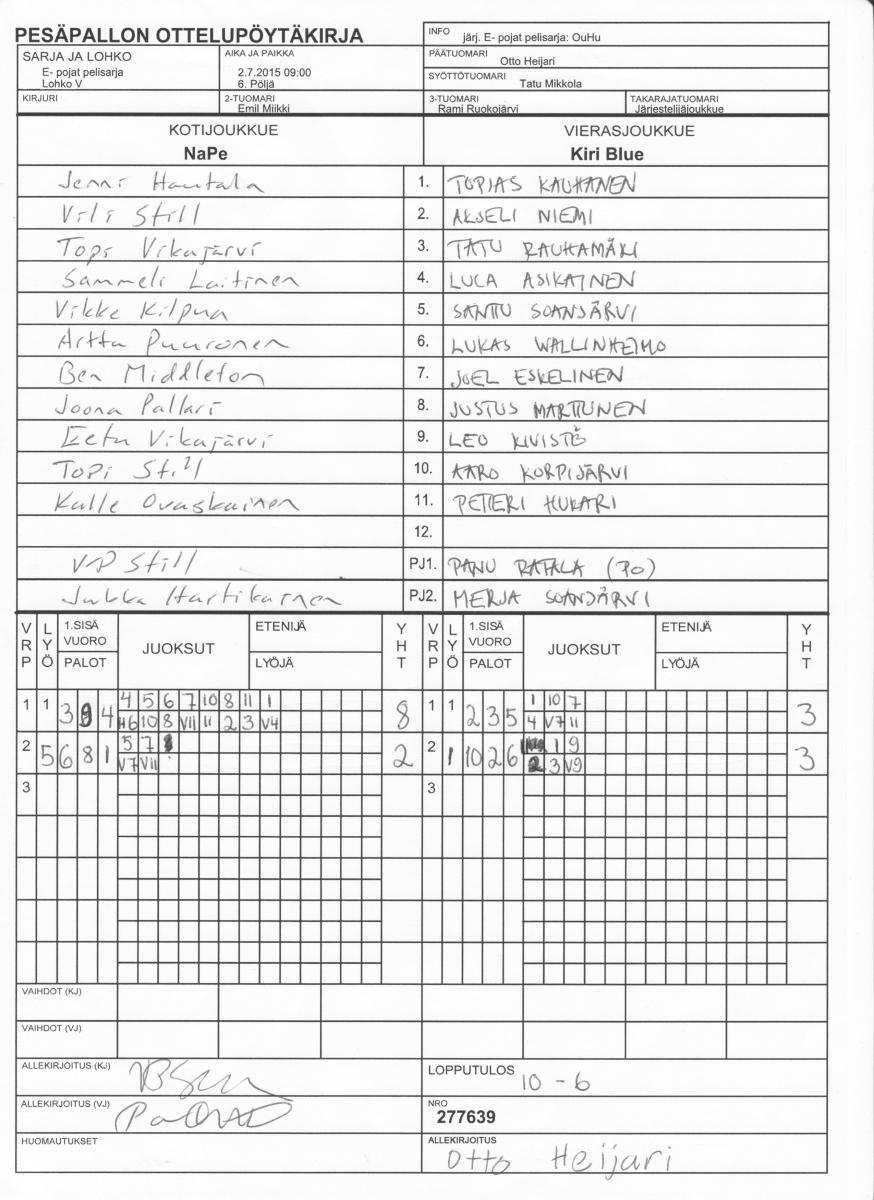 PESÄPALLON OTTELUPÖYTÄKIRJA
INFO järj. E- pojat pelisarja: OuHu
SARJA JA LOHKO
E- pojat pelisarja
Lohko V
AIKA JA PAIKKA
2.7.2015 09:00
6. Pöljä
PÄÄTUOMARI Otto Heijari
SYÖTTÖTUOMARI Tatu Mikkola
KIRJURI
2-TUOMARI
Emil Miikki
3-TUOMARI
Rami Ruokojärvi
TAKARAJATUOMARI
Järjestelijäjoukkue
KOTIJOUKKUE VIERASJOUKKUE
NaPe Kiri Blue
Jenni Hautala 1. TOPIAS KAUHANEN
Vili Still 2. AKSELI NIEMI
Topi Vikajärvi 3. TATU RAUHAMÄKI
Sammeli Laitinen 4. LUCA ASIKAINEN
Vikke Kilpua 5. SANTTU SOANJÄRVI
Arttu Puuronen 6. LUKAS WALLINHEIMO
Ben Middleton 7. JOEL ESKELINEN
Joona Pallari 8. JUSTUS MARTTUNEN
Eetu Vikajärvi 9. LEO KIVISTÖ
Topi Still 10. AARO KORPIJÄRVI
Kalle Ovaskainen 11. PETTERI HUKARI
12.
VP Still PJ1. PANU RATALA (PO)
Jukka Hartikainen PJ2. MERJA SOANJÄRVI
VRP LYÖ 1.SISÄ VUORO PALOT JUOKSUT ETENIJÄ LYÖJÄ YHT VRP LYÖ 1.SISÄ VUORO PALOT JUOKSUT ETENIJÄ LYÖJÄ YHT
1 1 3 9 4 4 5 6 7 10 8 11 1 8 1 1 2 3 5 1 10 7 3
H6 10 8 VII 11 2 3 V4 4 V7 11
2 5 6 8 1 5 7 2 2 1 10 2 6 1 9 3
V7 VII 2 3 V9
3 3
VAIHDOT (KJ)
VAIHDOT (VJ)
ALLEKIRJOITUS (KJ)
LOPPUTULOS 10 - 6
ALLEKIRJOITUS (VJ)
NRO
277639
HUOMAUTUKSET
ALLEKIRJOITUS
Otto Heijari